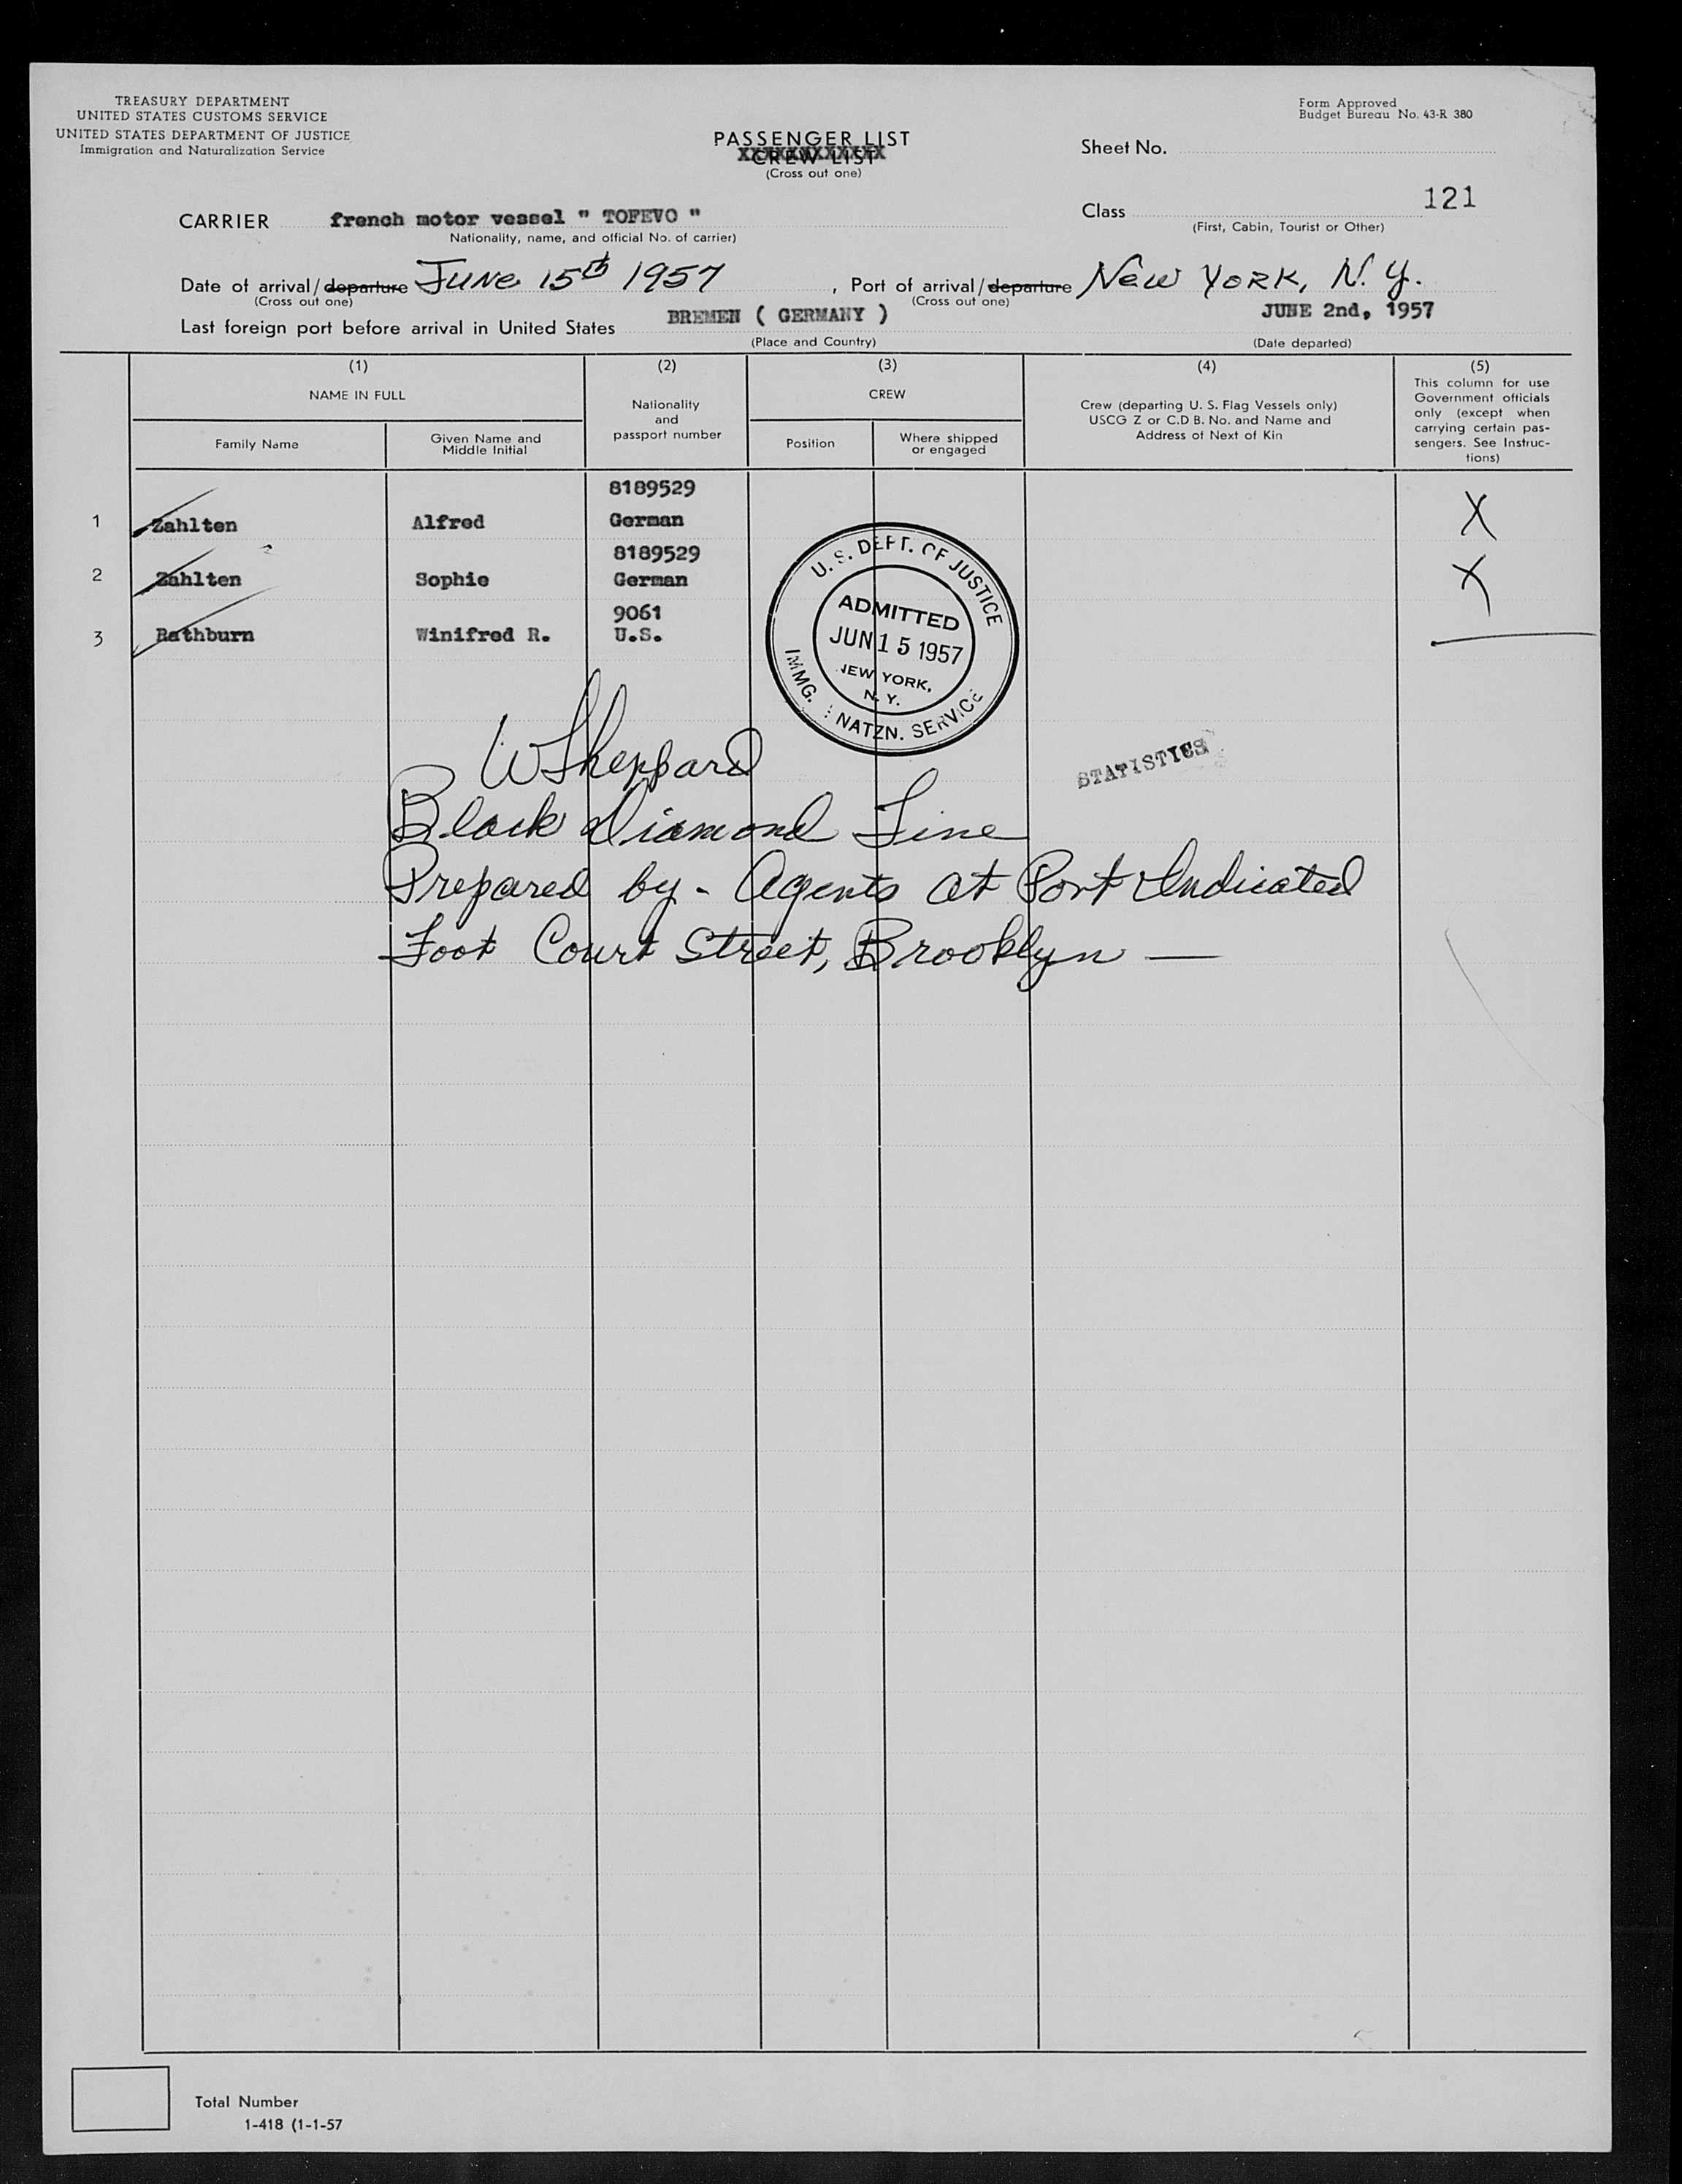 TREASURY DEPARTMENT
UNITED STATES CUSTOMS SERVICE
UNITED STATES DEPARTMENT OF JUSTICE
Immigration and Naturalization Service
Form Approved
Budget Bureau No. 43-R 380
PASSENGER LIST
CREW LIST
(Cross out one)
Sheet No.
Class 121
(First, Cabin, Tourist or Other)
CARRIER french motor vessel " TOFEVO "
Nationality, name, and official No. of carrier)
Date of arrival/departure June 15th 1957, Port of arrival/departure New York, N.Y.
(Cross out one) (Cross out one)
Last foreign port before arrival in United States BREMEN ( GERMANY ) JUNE 2nd, 1957
(Place and Country) (Date departed)
(1) (2) (3) (4) (5)
NAME IN FULL
Family Name
Given Name and
Middle Initial
Nationality
and
passport number
CREW
Position
Where shipped
or engaged
Crew (departing U. S. Flag Vessels only)
USCG Z or C.D B. No. and Name and
Address of Next of Kin
This column for use
Government officials
only (except when
carrying certain pas-
sengers. See Instruc-
tions)
8189529
1 Zahlten Alfred German X
8189529
2 Zahlten Sophie German X
9061
3 Rathburn Winifred R. U.S.
U. S. DEPT. OF JUSTICE
ADMITTED
JUN 15 1957
NEW YORK,
N. Y.
IMMG. NATZN. SERVICE
STATISTICS
W Sheppard
Black Diamond Line
Prepared by - Agents at Port Indicated
Foot Court Street, Brooklyn —
Total Number
1-418 (1-1-57